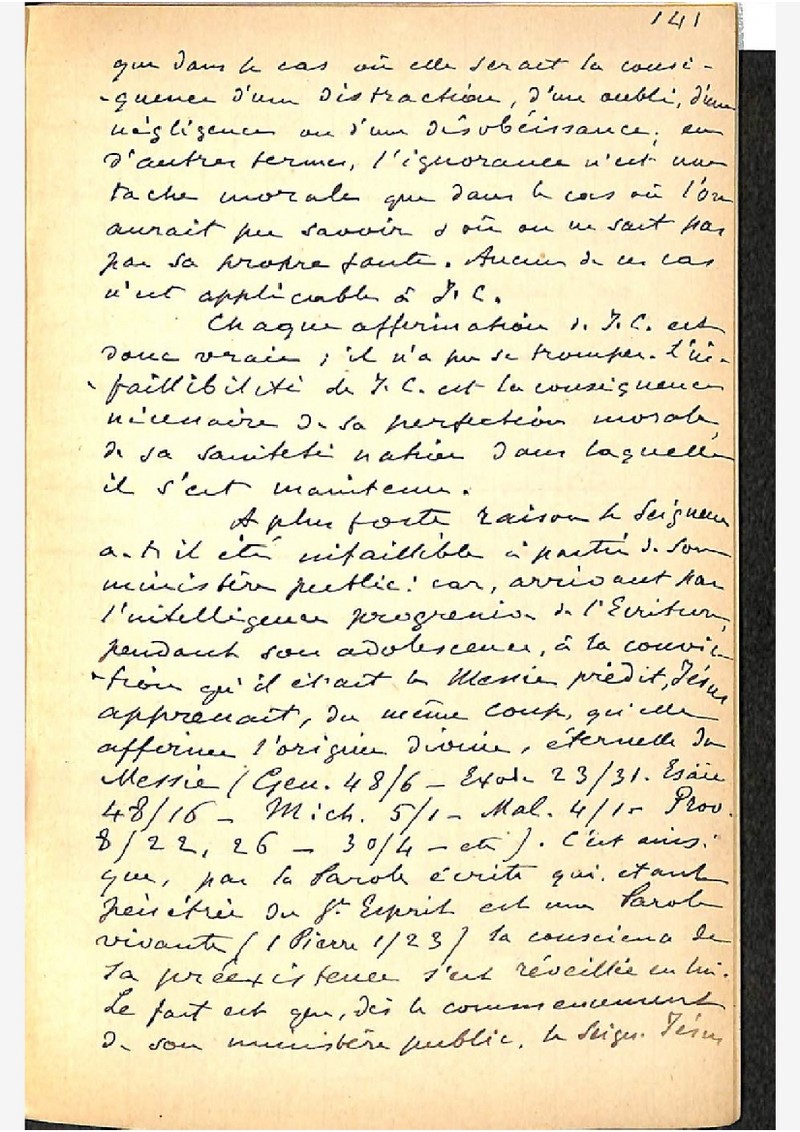 141
que dans le cas où elle serait la consé-
-quence d'une distraction, d'un oubli, d'une
négligence ou d'une désobéissance; en
d'autres termes, l'ignorance n'est une
tache morale que dans le cas où l'on
aurait pu savoir & où on ne sait pas
par sa propre faute. Aucun de ces cas
n'est applicable à J.C.
Chaque affirmation de J.C. est
donc vraie; il n'a pu se tromper. L'in-
-faillibilité de J.C. est la conséquence
nécessaire de sa perfection morale,
de sa sainteté native dans laquelle
il s'est maintenu.
A plus forte raison le Seigneur
a-t-il été infaillible à partir de son
ministère public: car, arrivant par
l'intelligence progressive de l'Ecriture,
pendant son adolescence, à la convic-
-tion qu'il était le Messie prédit, Jésus
apprenait, du même coup, qu'elle
affirme l'origine divine, éternelle du
Messie (Gen. 48/6 - Exode 23/31. Esaïe
48/16 - Mich. 5/1 - Mal. 4/1 - Prov.
8/22, 26 - 30/4 - etc). C'est ainsi
que, par la Parole écrite qui, étant
pénétrée du St Esprit est une Parole
vivante (1 Pierre 1/23) la conscience de
sa préexistence s'est réveillée en lui.
Le fait est que, dès le commencement
de son ministère public, le Seigr. Jésus